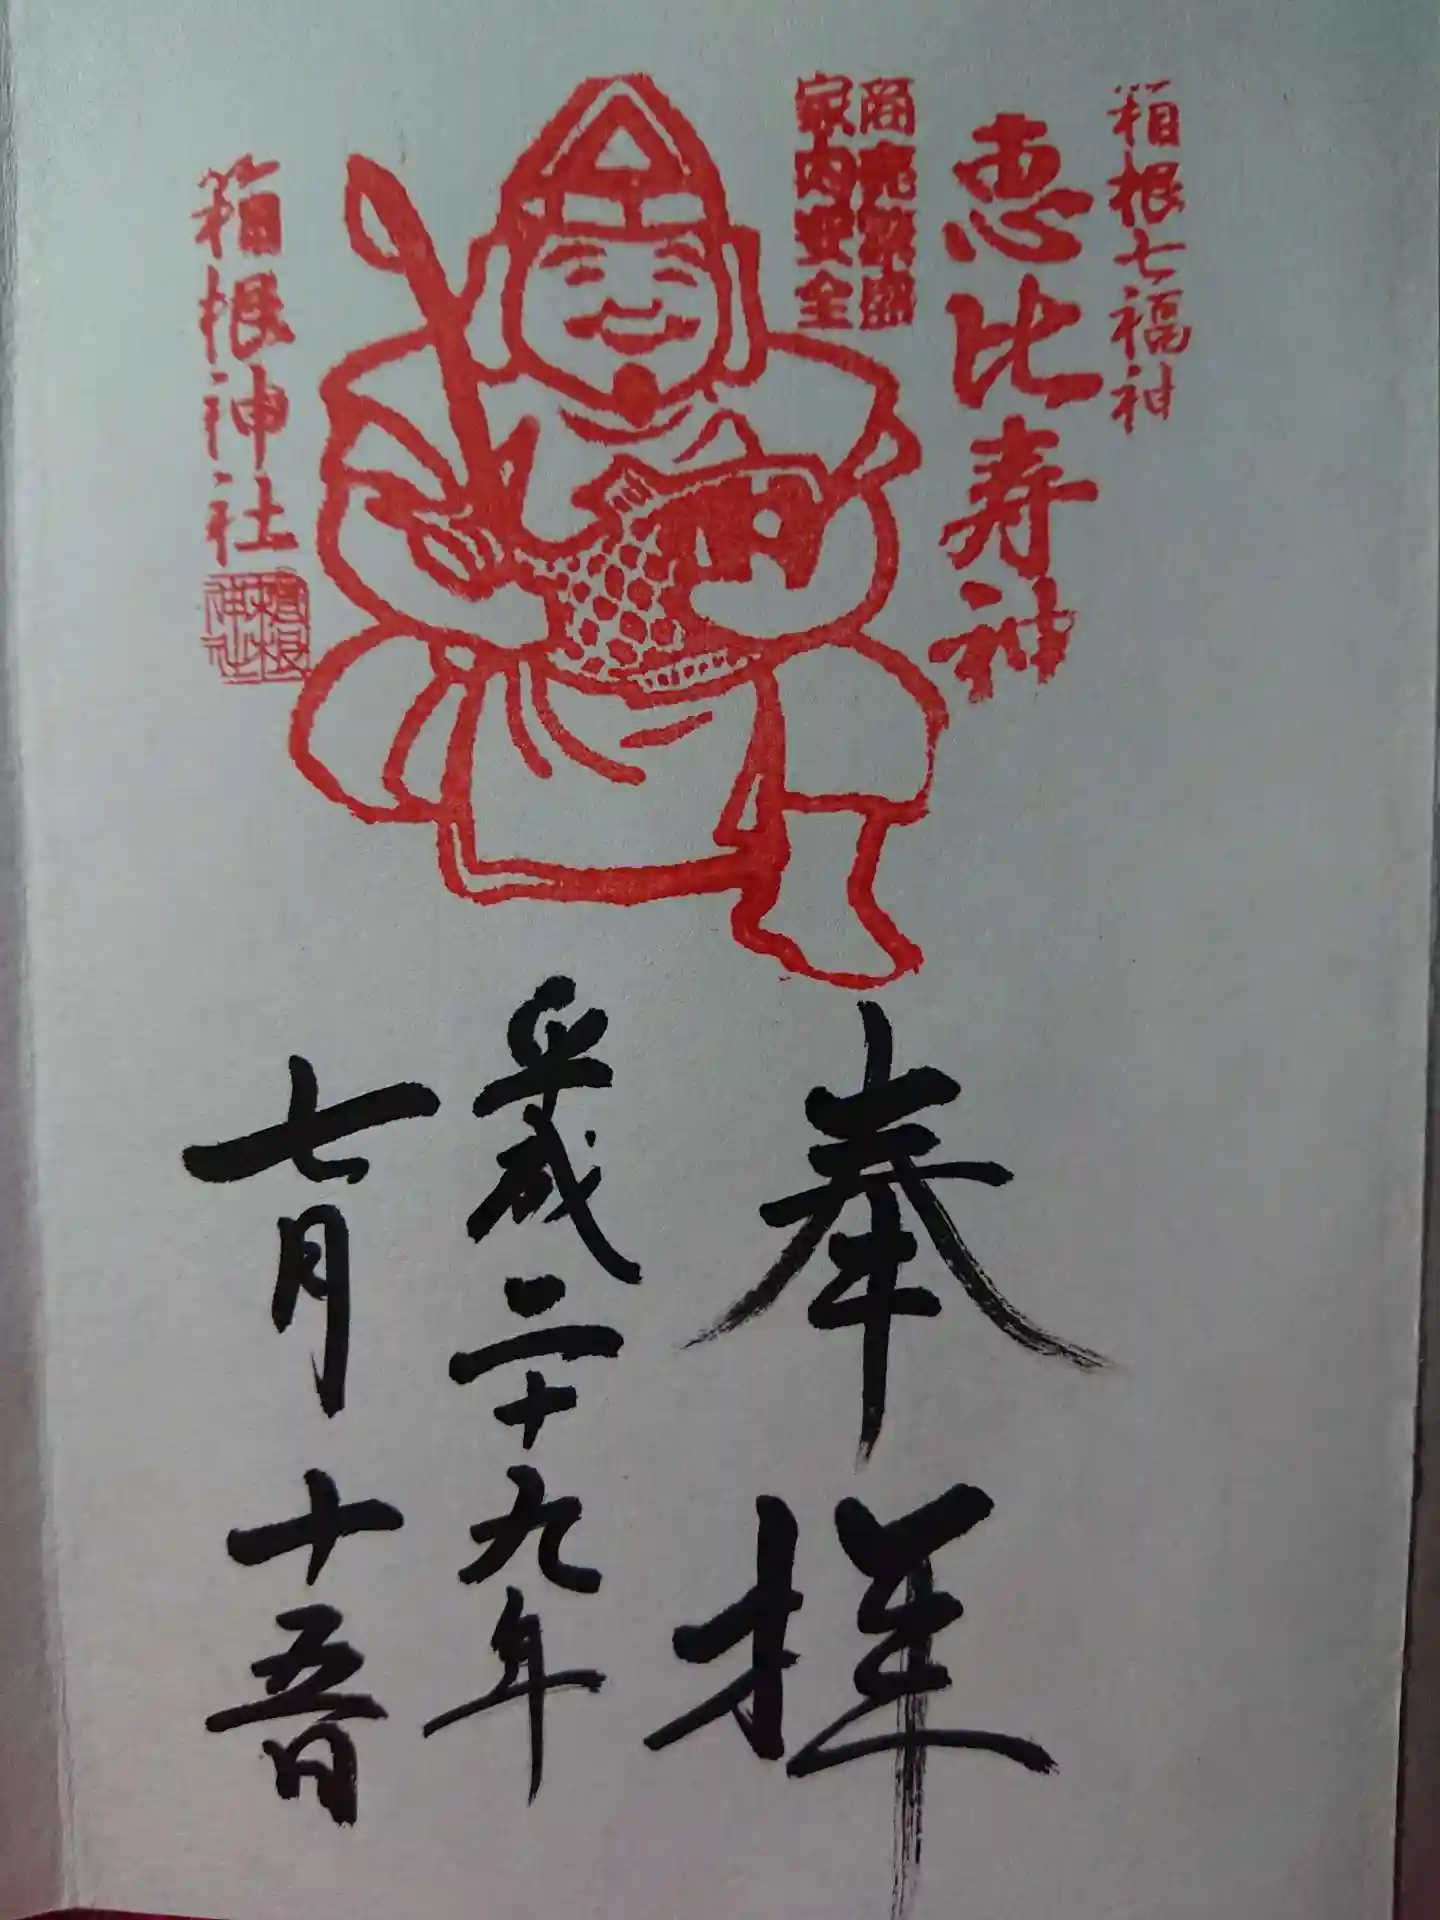 箱根七福神
恵比寿神
商売繁盛
家内安全
箱根神社
箱根
神社
奉拝
平成二十九年
七月十五日